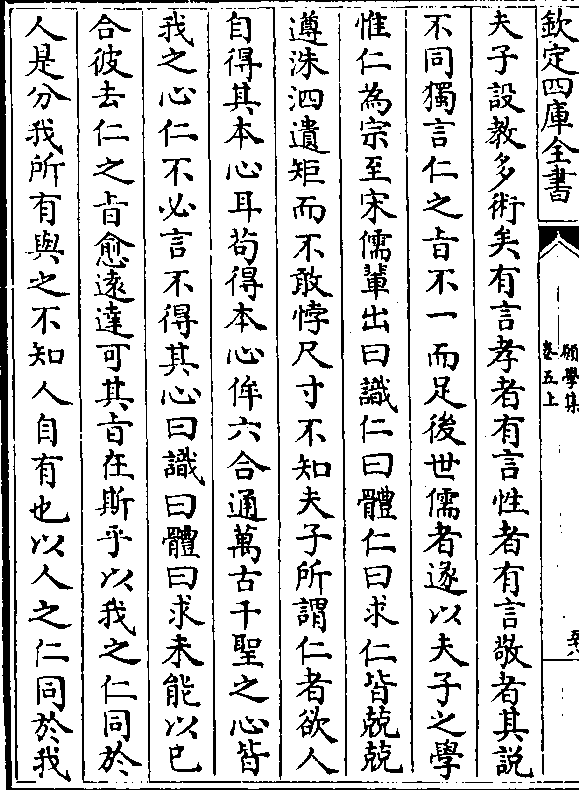 欽定四庫全書
願學集
卷五上
夫子設教多術矣有言孝者有言性者有言敬者其説
不同獨言仁之㫖不一而足後世儒者遂以夫子之學
惟仁為宗至宋儒輩出曰識仁曰體仁曰求仁皆兢兢
遵洙泗遺矩而不敢悖尺寸不知夫子所謂仁者欲人
自得其本心耳茍得本心侔六合通萬古千聖之心皆
我之心仁不必言不得其心曰識曰體曰求未能以已
合彼去仁之㫖愈逺達可其㫖在斯乎以我之仁同於
人是分我所有與之不知人自有也以人之仁同於我